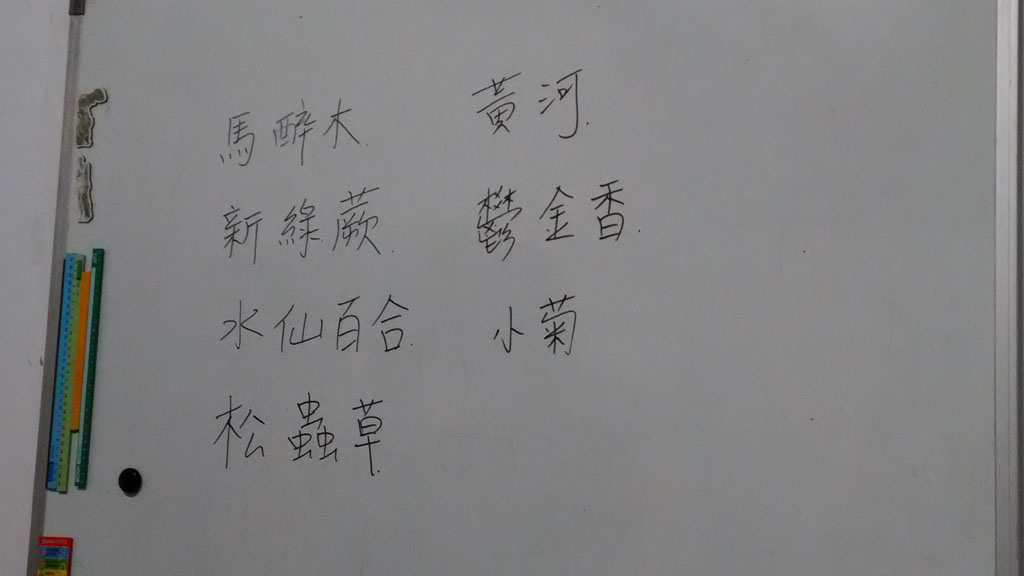 馬醉木.
新綠蕨.
水仙百合.
松蟲草.
黃河.
鬱金香.
小菊